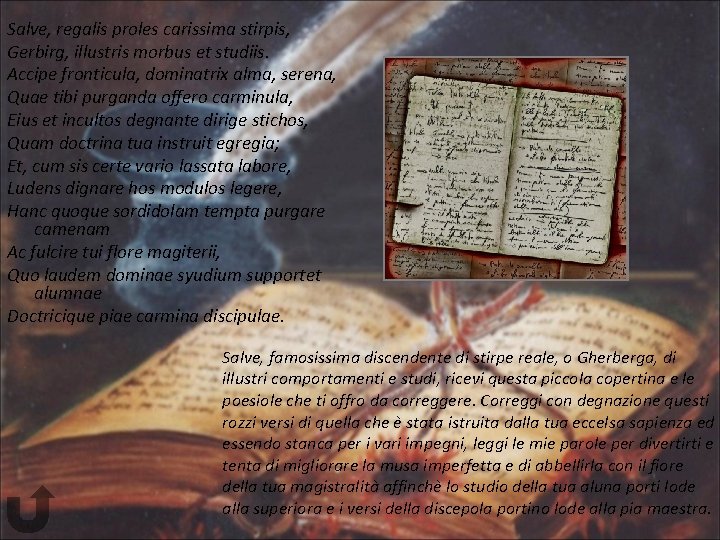 Salve, regalis proles carissima stirpis,
Gerbirg, illustris morbus et studiis.
Accipe fronticula, dominatrix alma, serena,
Quae tibi purganda offero carminula,
Eius et incultos degnante dirige stichos,
Quam doctrina tua instruit egregia;
Et, cum sis certe vario lassata labore,
Ludens dignare hos modulos legere,
Hanc quoque sordidolam tempta purgare
camenam
Ac fulcire tui flore magiterii,
Quo laudem dominae syudium supportet
alumnae
Doctricique piae carmina discipulae.
Salve, famosissima discendente di stirpe reale, o Gherberga, di
illustri comportamenti e studi, ricevi questa piccola copertina e le
poesiole che ti offro da correggere. Correggi con degnazione questi
rozzi versi di quella che è stata istruita dalla tua eccelsa sapienza ed
essendo stanca per i vari impegni, leggi le mie parole per divertirti e
tenta di migliorare la musa imperfetta e di abbellirla con il fiore
della tua magistralità affinchè lo studio della tua aluna porti lode
alla superiora e i versi della discepola portino lode alla pia maestra.